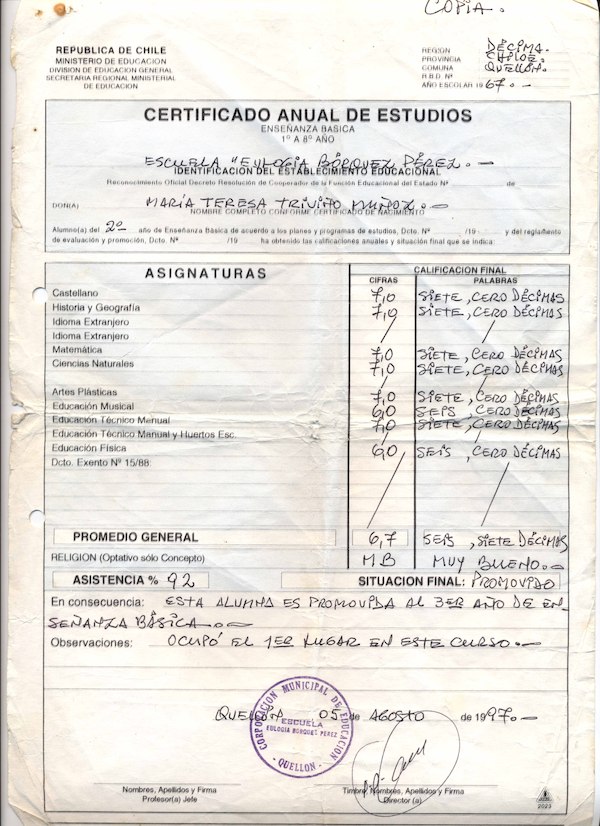 COPIA.
REPUBLICA DE CHILE
MINISTERIO DE EDUCACION
DIVISION DE EDUCACION GENERAL
SECRETARIA REGIONAL MINISTERIAL
DE EDUCACION
REGION DÉCIMA.
PROVINCIA CHILOÉ.
COMUNA QUELLÓN.
R.B.D. Nº
AÑO ESCOLAR 19 67.-
CERTIFICADO ANUAL DE ESTUDIOS
ENSEÑANZA BASICA
1º A 8º AÑO
ESCUELA "EULOGIA BÓRQUEZ PÉREZ.-
IDENTIFICACION DEL ESTABLECIMIENTO EDUCACIONAL
Reconocimiento Oficial Decreto Resolución de Cooperador de la Función Educacional del Estado Nº de
DON(A) MARÍA TERESA TRIVIÑO MUÑOZ.-
NOMBRE COMPLETO CONFORME CERTIFICADO DE NACIMIENTO
Alumno(a) del 2º año de Enseñanza Básica de acuerdo a los planes y programas de estudios, Dcto. Nº /19 y del reglamento
de evaluación y promoción, Dcto. Nº /19 ha obtenido las calificaciones anuales y situación final que se indica:
ASIGNATURAS CALIFICACION FINAL
CIFRAS PALABRAS
Castellano 7,0 SIETE, CERO DÉCIMAS
Historia y Geografía 7,0 SIETE, CERO DÉCIMAS
Idioma Extranjero
Idioma Extranjero
Matemática 7,0 SIETE, CERO DÉCIMAS
Ciencias Naturales 7,0 SIETE, CERO DÉCIMAS
Artes Plásticas 7,0 SIETE, CERO DÉCIMAS
Educación Musical 6,0 SEIS, CERO DÉCIMAS
Educación Técnico Manual 7,0 SIETE, CERO DÉCIMAS
Educación Técnico Manual y Huertos Esc.
Educación Física 6,0 SEIS, CERO DÉCIMAS
Dcto. Exento Nº 15/88:
PROMEDIO GENERAL 6,7 SEIS, SIETE DÉCIMAS
RELIGION (Optativo sólo Concepto) MB MUY BUENO.-
ASISTENCIA % 92 SITUACION FINAL: PROMOVIDO
En consecuencia: ESTA ALUMNA ES PROMOVIDA AL 3ER AÑO DE EN-
SEÑANZA BÁSICA.-
Observaciones: OCUPÓ EL 1ER LUGAR EN ESTE CURSO.-
QUELLÓN 05 de AGOSTO de 1997.-
CORPORACION MUNICIPAL DE EDUCACION
ESCUELA
EULOGIA BORQUEZ PEREZ
- QUELLON -
Nombres, Apellidos y Firma
Profesor(a) Jefe
Timbre, Nombres, Apellidos y Firma
Director (a)